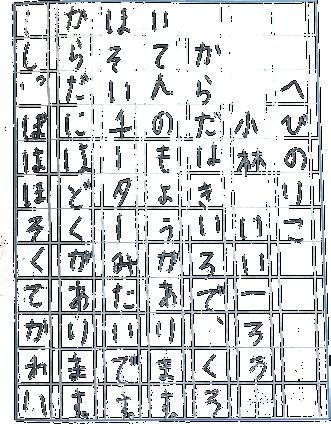 へびのりこ
小林いい一ろう
からだはきいろで、くろ
いてんのもようがあります
はそいチーターみたいです
からだにはどくがあります
しっぽはほそくてがれい